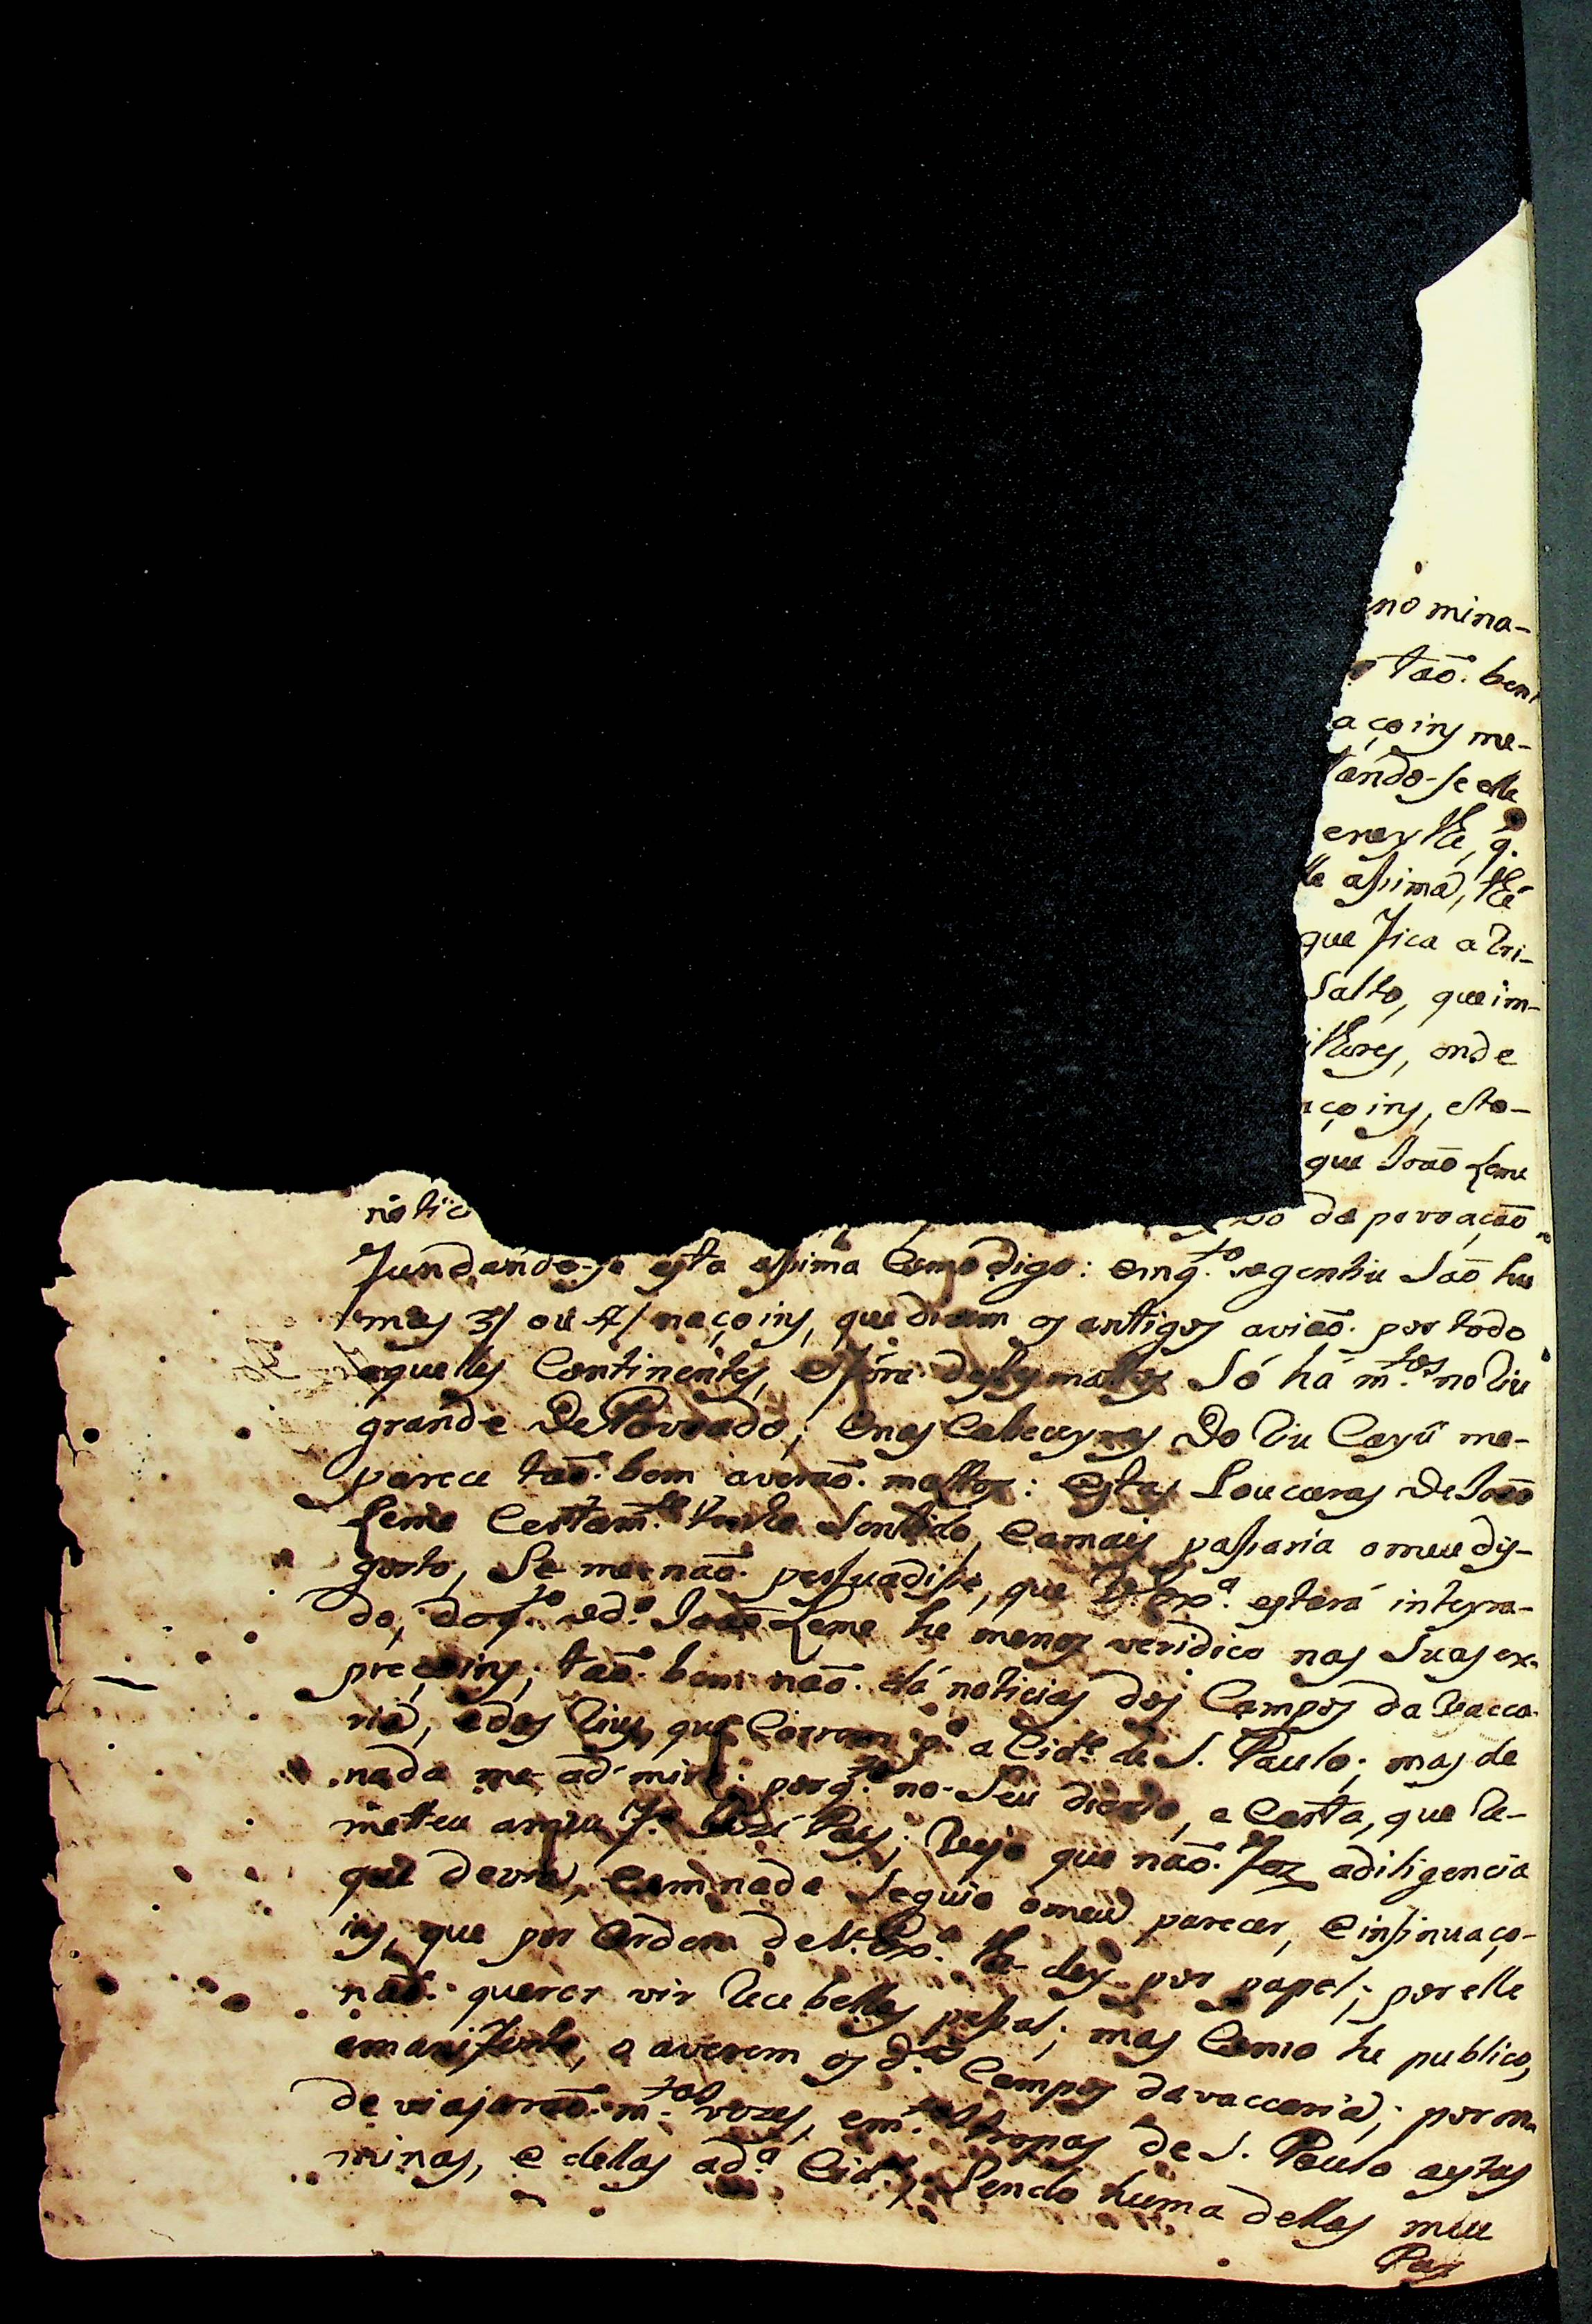 no mina-
taõ. bem
açoins me-
tando-se elle
q.
assima, thé
que fica a Tri-
Salto, que im-
ilhores, onde
açoins, esta-
que João Leme
notic do da povoação
fundando-se esta assima Como digo: emq.to ao gentiu Saõ hu
mas 3/ ou 4/ naçoins, que diziam os antigos aviaõ. por todo
aquelles Continentes, e fora destes mattos Só há m.tos no Riu
grande De Povoado; e nas Cabeceyras Do Riu Cayû me-
parece taõ. bem averaõ. mattos: estas Loucuras De João
Leme Certam.te tenho Sentido, e a mais passaria o meu dis-
gosto, Se me naõ. persuadisse, que V. Ex.a estará inteyra-
do, do q.to o d.o João Leme he menos veridico nas Suas ex-
preçoins; taõ. bem naõ. dá noticias dos Campos da Vacca-
ria, e dos Rius, que Correm p.a a Cid.e de S. Paulo; mas de
nada me ad-miro: porq.to no Seu diario, e Carta, que Re-
metteu a meu F.o José Paes; vejo que naõ. fez a diligencia
que devia, e em nada Seguio o meu parecer, e insinuaço-
ins, que por Ordem de V. Ex.a lhe dey por papel; por elle
naõ. querer vir Recebellas pessoal; mas Como he publico,
e manifesto, o averem os d.os Campos da vaccaria; por on-
de viajaraõ. m.tas vezes, e m.tas tropas de S. Paulo a estas
minas, e dellas a d.a Cid.e, Sendo huma dellas meu
Pay